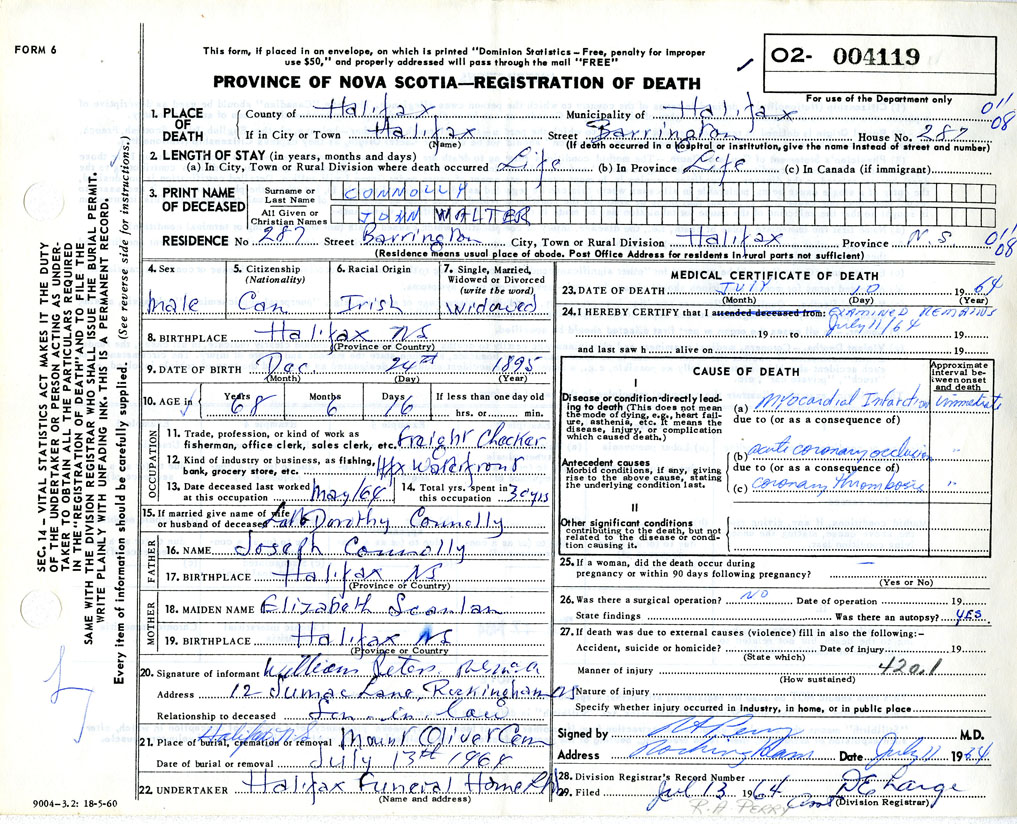 FORM 6
This form, if placed in an envelope, on which is printed "Dominion Statistics – Free, penalty for improper
use $50," and properly addressed will pass through the mail "FREE"
PROVINCE OF NOVA SCOTIA—REGISTRATION OF DEATH
O2- 004119
For use of the Department only
011
08
1. PLACE OF DEATH
County of Halifax Municipality of Halifax
If in City or Town Halifax Street Barrington House No. 287
(Name) (If death occurred in a hospital or institution, give the name instead of street and number)
2. LENGTH OF STAY (in years, months and days)
(a) In City, Town or Rural Division where death occurred Life (b) In Province Life (c) In Canada (if immigrant)
3. PRINT NAME OF DECEASED
Surname or Last Name CONNOLLY
All Given or Christian Names JOHN WALTER
RESIDENCE No 287 Street Barrington City, Town or Rural Division Halifax Province N.S 011
08
(Residence means usual place of abode. Post Office Address for residents in rural parts not sufficient)
4. Sex male
5. Citizenship (Nationality) Can
6. Racial Origin Irish
7. Single, Married, Widowed or Divorced (write the word) Widowed
8. BIRTHPLACE Halifax NS
(Province or Country)
9. DATE OF BIRTH Dec 24st 1895
(Month) (Day) (Year)
10. AGE in Years 68 Months 6 Days 16 If less than one day old hrs. or min.
OCCUPATION
11. Trade, profession, or kind of work as
fisherman, office clerk, sales clerk, etc. Freight Checker
12. Kind of industry or business, as fishing,
bank, grocery store, etc. Hfx Waterfront
13. Date deceased last worked at this occupation May/64
14. Total yrs. spent in this occupation 30 yrs
15. If married give name of wife
or husband of deceased Late Dorothy Connolly
FATHER
16. NAME Joseph Connolly
17. BIRTHPLACE Halifax NS
(Province or Country)
MOTHER
18. MAIDEN NAME Elizabeth Scanlan
19. BIRTHPLACE Halifax NS
(Province or Country)
20. Signature of informant William Peters
Address 12 Sumac Lane, Rockingham NS
Relationship to deceased Son in law
21. Place of burial, cremation or removal Halifax NS Mount Olivet Cem
Date of burial or removal July 13th 1964
22. UNDERTAKER Halifax Funeral Home
(Name and address)
9004–3.2: 18-5-60
MEDICAL CERTIFICATE OF DEATH
23. DATE OF DEATH JULY 10 1964
(Month) (Day) (Year)
24. I HEREBY CERTIFY that I attended deceased from: EXAMINED REMAINS
July 11/64
19 to 19
and last saw h alive on 19
CAUSE OF DEATH
Approximate interval between onset and death
I
Disease or condition directly leading to death (This does not mean the mode of dying, e.g., heart failure, asthenia, etc. It means the disease, injury, or complication which caused death.)
(a) Myocardial Infarction immediate
due to (or as a consequence of)
Antecedent causes
Morbid conditions, if any, giving rise to the above cause, stating the underlying condition last.
(b) acute coronary occlusion "
due to (or as a consequence of)
(c) coronary thrombosis "
II
Other significant conditions
contributing to the death, but not related to the disease or condition causing it.
25. If a woman, did the death occur during
pregnancy or within 90 days following pregnancy? —
(Yes or No)
26. Was there a surgical operation? NO Date of operation 19
State findings Was there an autopsy? YES
27. If death was due to external causes (violence) fill in also the following:–
Accident, suicide or homicide? Date of injury 19
(State which)
Manner of injury 420.1
(How sustained)
Nature of injury
Specify whether injury occurred in industry, in home, or in public place
Signed by R A Perry M.D.
Address Rockingham Date July 11 1964
28. Division Registrar's Record Number
29. Filed Jul 13 1964
(Division Registrar)
R.A PERRY
SEC. 14 – VITAL STATISTICS ACT MAKES IT THE DUTY
OF THE UNDERTAKER OR PERSON ACTING AS UNDERTAKER TO OBTAIN ALL THE PARTICULARS REQUIRED
IN THE "REGISTRATION OF DEATH" AND TO FILE THE
SAME WITH THE DIVISION REGISTRAR WHO SHALL ISSUE THE BURIAL PERMIT.
WRITE PLAINLY WITH UNFADING INK. THIS IS A PERMANENT RECORD.
Every item of information should be carefully supplied. (See reverse side for instructions.)